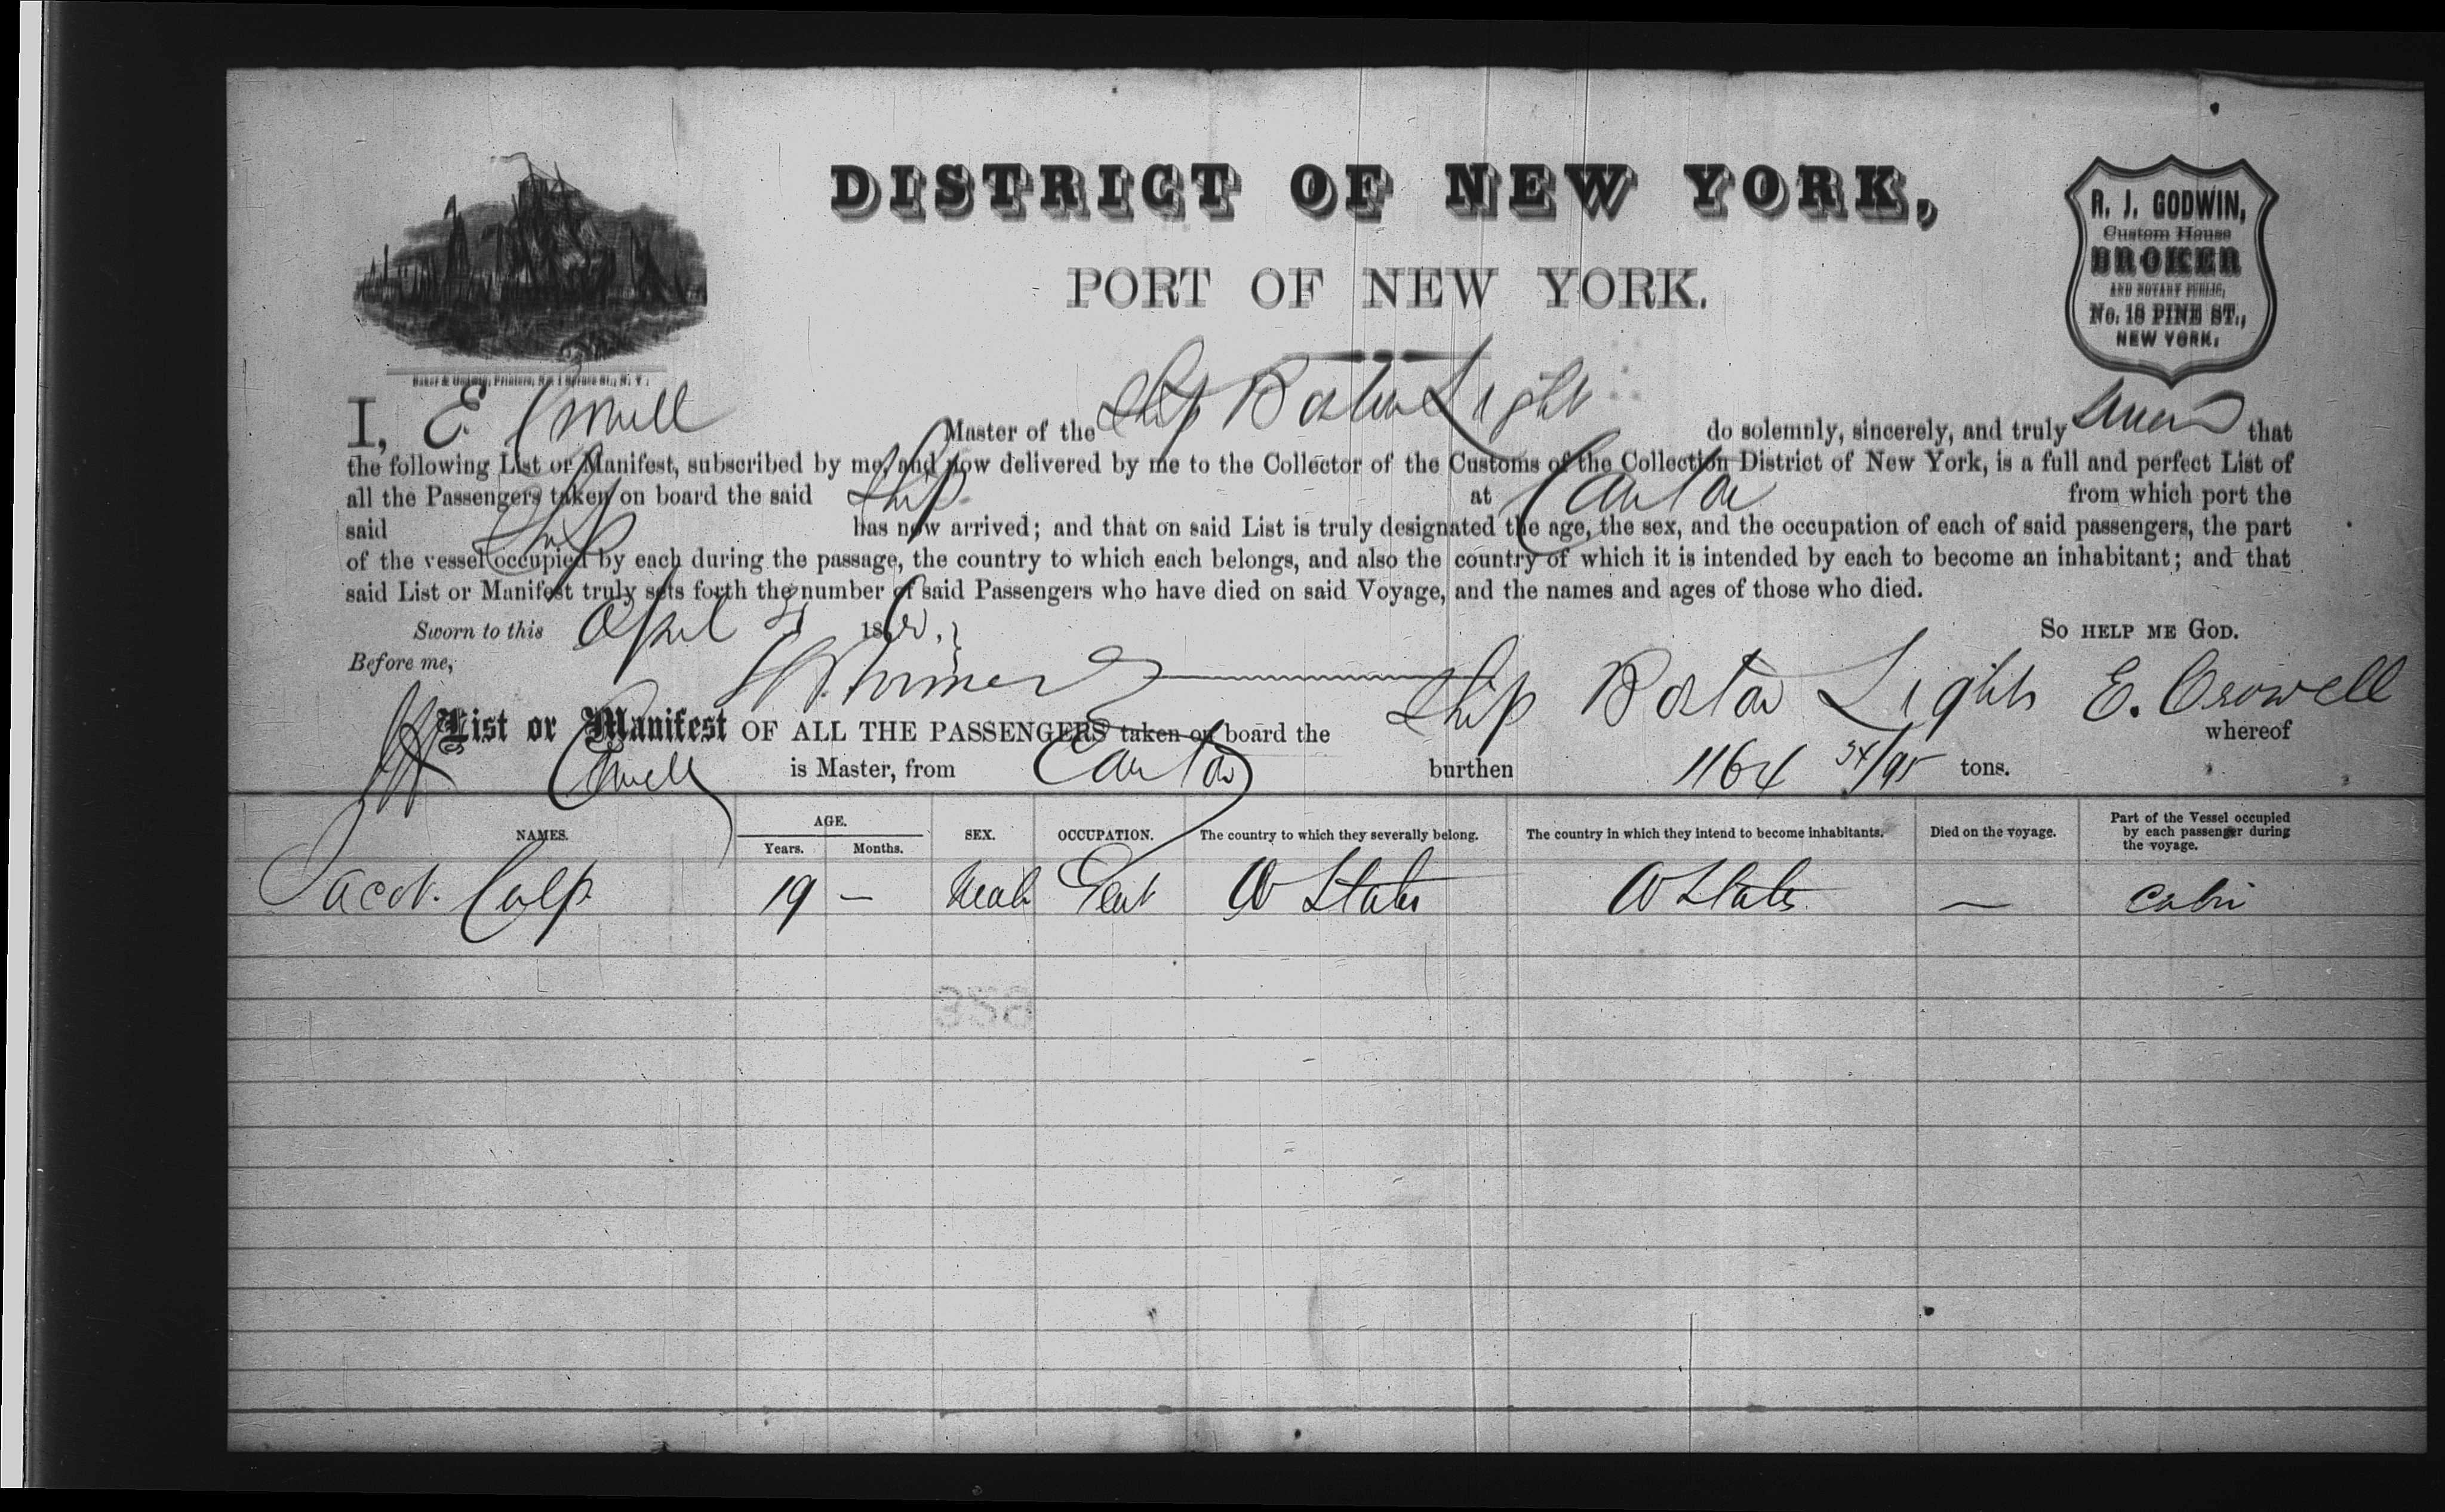 DISTRICT OF NEW YORK,
PORT OF NEW YORK.
R. J. GODWIN,
Custom House
BROKER
AND NOTARY PUBLIC,
No. 18 PINE ST.,
NEW YORK.
I, E. Crowell Master of the Ship Boston Light do solemnly, sincerely, and truly swear that
the following List or Manifest, subscribed by me, and now delivered by me to the Collector of the Customs of the Collection District of New York, is a full and perfect List of
all the Passengers taken on board the said Ship at Canton from which port the
said Ship has now arrived; and that on said List is truly designated the age, the sex, and the occupation of each of said passengers, the part
of the vessel occupied by each during the passage, the country to which each belongs, and also the country of which it is intended by each to become an inhabitant; and that
said List or Manifest truly sets forth the number of said Passengers who have died on said Voyage, and the names and ages of those who died.
Sworn to this April 21 1860, So HELP ME GOD.
Before me, E. Crowell
List or Manifest OF ALL THE PASSENGERS taken on board the Ship Boston Light whereof
Crowell is Master, from Canton burthen 1164 34/95 tons.
NAMES. AGE. Years. Months. SEX. OCCUPATION. The country to which they severally belong. The country in which they intend to become inhabitants. Died on the voyage. Part of the Vessel occupied by each passenger during the voyage.
Jacob Culp 19 — Male Gent U States U States — Cabin